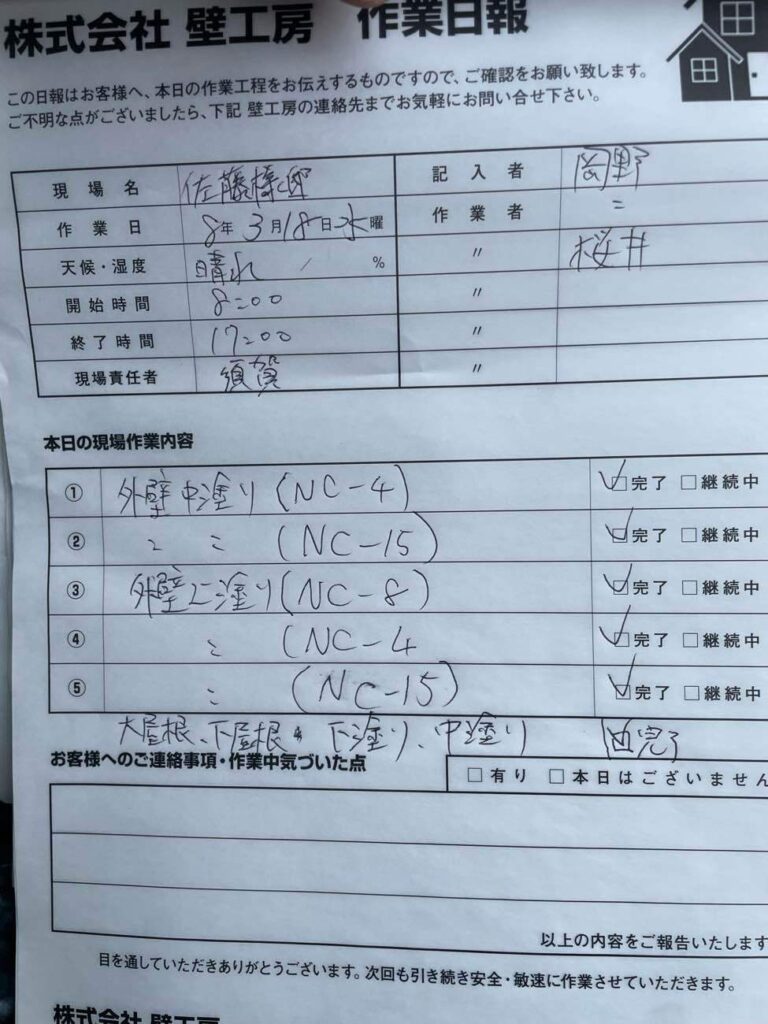 株式会社 壁工房 作業日報
この日報はお客様へ、本日の作業工程をお伝えするものですので、ご確認をお願い致します。
ご不明な点がございましたら、下記 壁工房の連絡先までお気軽にお問い合せ下さい。
現場名 佐藤様邸 記入者 岡野
作業日 8年3月18日水曜 作業者 〃
天候・湿度 晴れ / % 〃 桜井
開始時間 8:00 〃
終了時間 17:00 〃
現場責任者 須賀 〃
本日の現場作業内容
① 外壁中塗り(NC-4) ☑完了 □継続中
② 〃 〃 (NC-15) ☑完了 □継続中
③ 外壁上塗り(NC-8) ☑完了 □継続中
④ 〃 (NC-4 ☑完了 □継続中
⑤ 〃 (NC-15) ☑完了 □継続中
大屋根、下屋根 下塗り、中塗り 完了
お客様へのご連絡事項・作業中気づいた点 □有り □本日はございません
以上の内容をご報告いたします
目を通していただきありがとうございます。次回も引き続き安全・敏速に作業させていただきます。
株式会社 壁工房